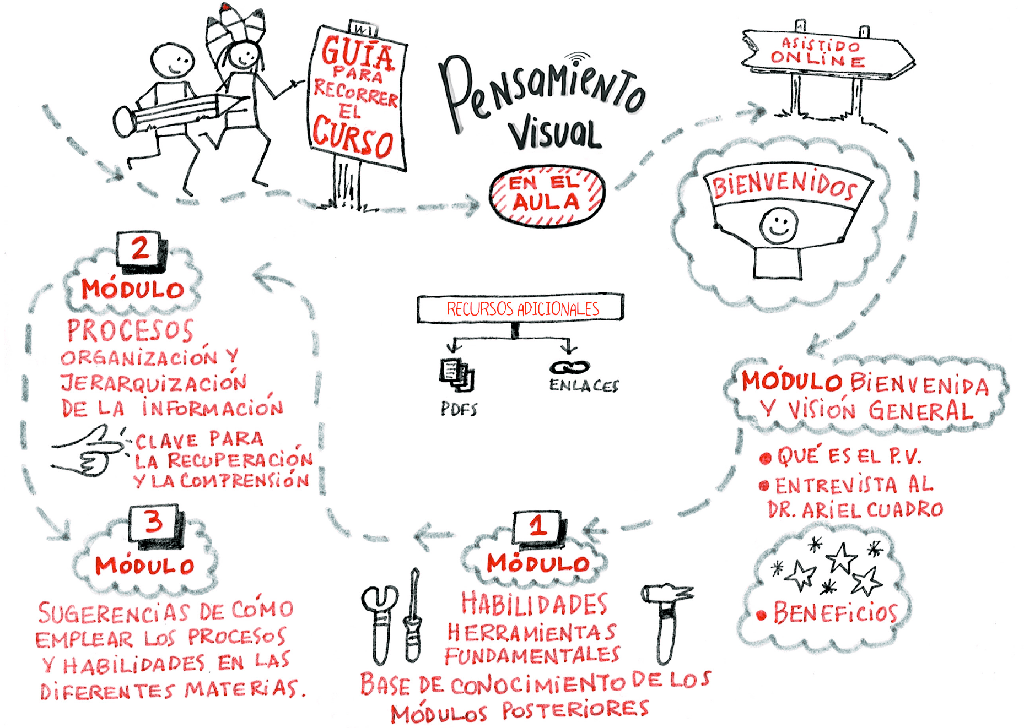 GUÍA
PARA
RECORRER
EL
CURSO
PENSAMIENTO
VISUAL
EN EL
AULA
ASISTIDO
ONLINE
BIENVENIDOS
MÓDULO BIENVENIDA
Y VISIÓN GENERAL
QUÉ ES EL P.V.
ENTREVISTA AL
DR. ARIEL CUADRO
BENEFICIOS
RECURSOS ADICIONALES
PDFS
ENLACES
1
MÓDULO
HABILIDADES
HERRAMIENTAS
FUNDAMENTALES
BASE DE CONOCIMIENTO DE LOS
MÓDULOS POSTERIORES
2
MÓDULO
PROCESOS
ORGANIZACIÓN Y
JERARQUIZACIÓN
DE LA INFORMACIÓN
CLAVE PARA
LA RECUPERACIÓN
Y LA COMPRENSIÓN
3
MÓDULO
SUGERENCIAS DE CÓMO
EMPLEAR LOS PROCESOS
Y HABILIDADES EN LAS
DIFERENTES MATERIAS.